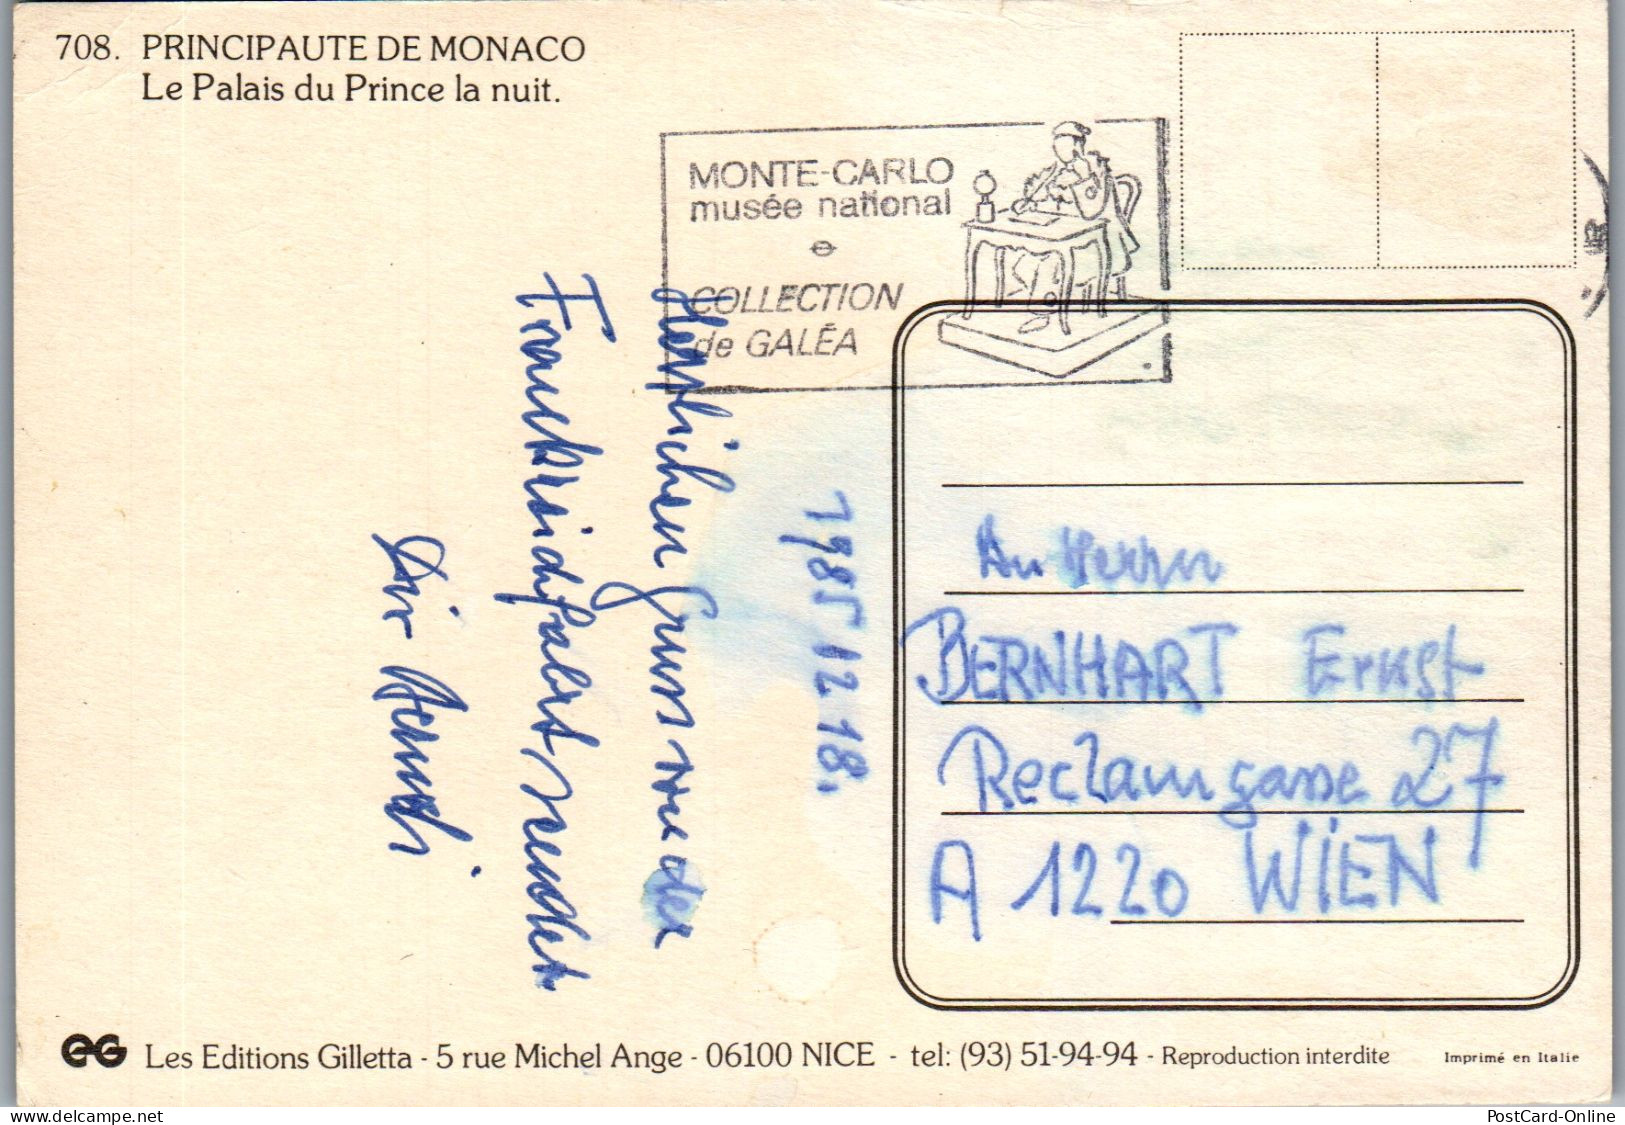 708. PRINCIPAUTE DE MONACO
Le Palais du Prince la nuit.
MONTE-CARLO
musée national
COLLECTION
de GALÉA
Herzlichen Gruss von der
Frankreichfahrt sendet
Dir Heinrich
1985 12 18.
An Herrn
BERNHART Ernst
Reclamgasse 27
A 1220 WIEN
EG Les Editions Gilletta - 5 rue Michel Ange - 06100 NICE - tel: (93) 51-94-94 - Reproduction interdite
Imprimé en Italie
www.delcampe.net
PostCard-Online